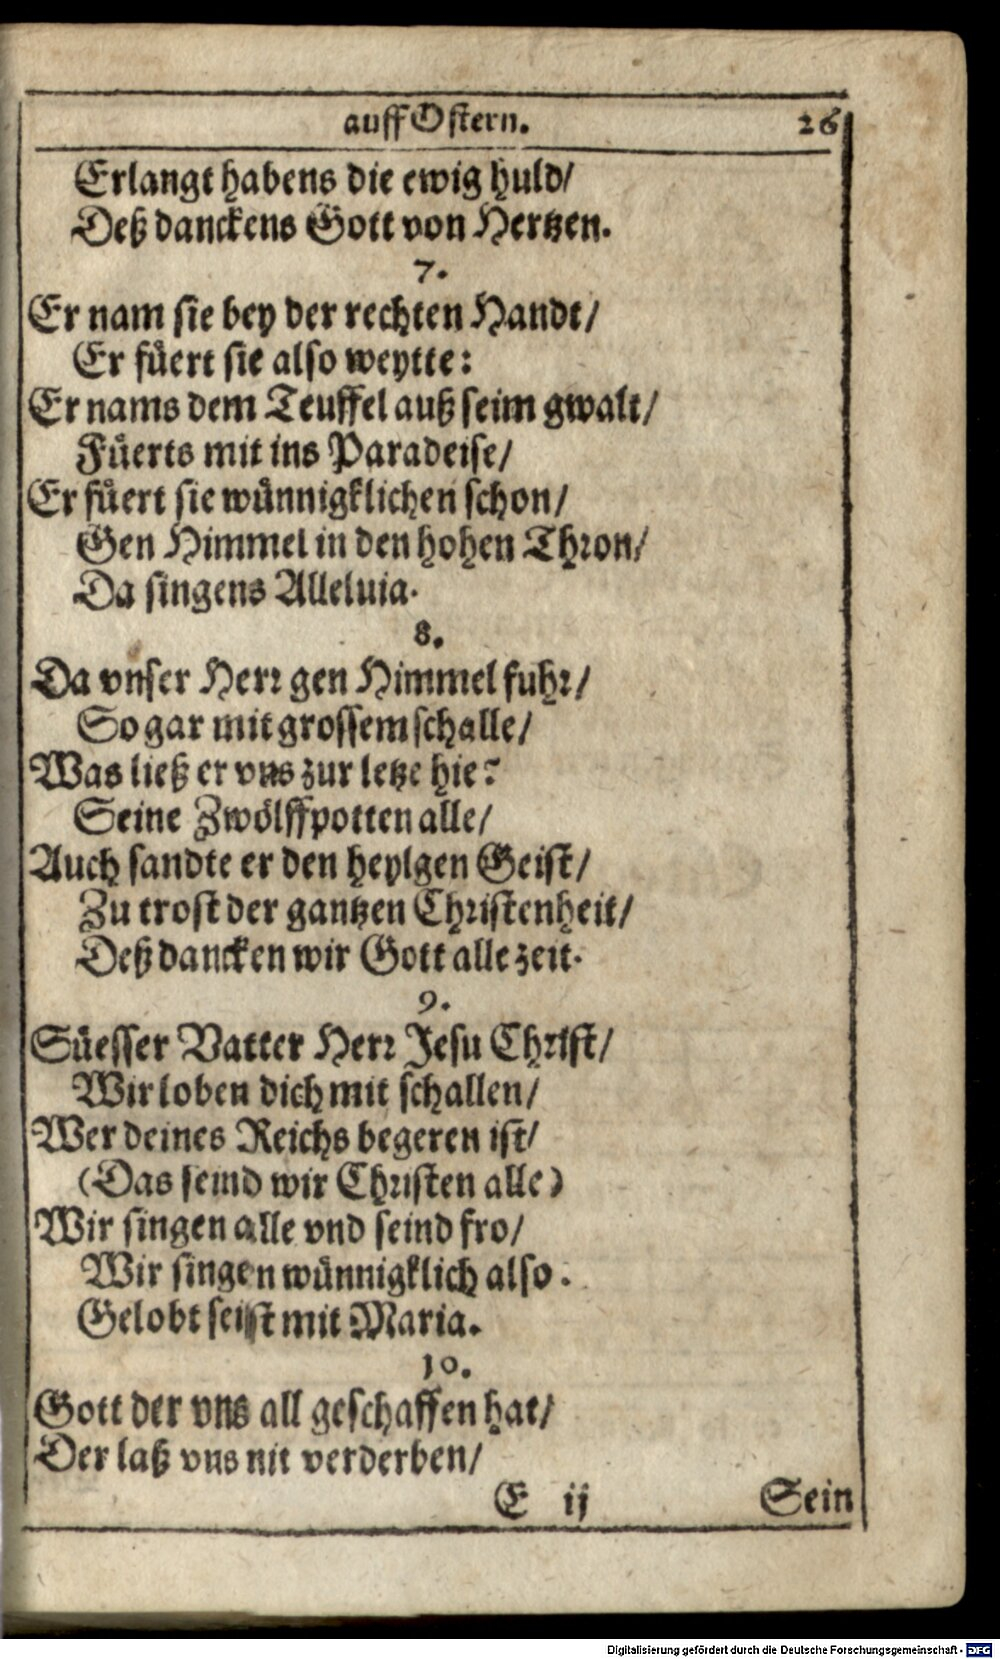 auff Ostern. 26
Erlangt habens die ewig huld/
Deß danckens Gott von Hertzen.
7.
Er nam sie bey der rechten Handt/
Er füert sie also weytte:
Er nams dem Teuffel auß seim gwalt/
Füerts mit ins Paradeise/
Er füert sie wünnigklichen schon/
Gen Himmel in den hohen Thron/
Da singens Alleluia.
8.
Da vnser Herr gen Himmel fuhr/
So gar mit grossem schalle/
Was ließ er vns zur letze hie?
Seine Zwölffpotten alle/
Auch sandte er den heylgen Geist/
Zu trost der gantzen Christenheit/
Deß dancken wir Gott alle zeit.
9.
Süesser Vatter Herr Jesu Christ/
Wir loben dich mit schallen/
Wer deines Reichs begeren ist/
(Das seind wir Christen alle)
Wir singen alle vnd seind fro/
Wir singen wünnigklich also.
Gelobt seist mit Maria.
10.
Gott der vns all geschaffen hat/
Der laß vns nit verderben/
E ij Sein
Digitalisierung gefördert durch die Deutsche Forschungsgemeinschaft - DFG